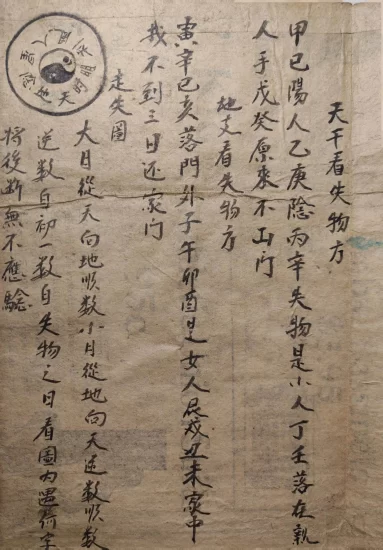 天干看失物方
甲巳陽人乙庚陰丙辛失物是小人丁壬落在親
人手戊癸原來不出门
地支看失物方
寅辛巳亥落門外子午卯酉是女人辰戌丑未家中
我不到三日还家门
走失圖
大月從天向地順数小月從地向天逆数順数
逆数自初一数自失物之日看圖内遇何字
將後断無不應驗
天
地
人